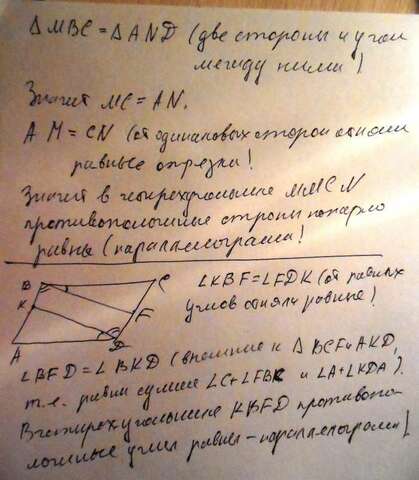 Δ MBC = Δ AND (две стороны и угол
между ними)
Значит MC = AN.
AM = CN (от одинаковых сторон отняли
равные отрезки!
Значит в четырехугольнике
противоположные стороны попарно
равны (параллелограмм!
B C
K F
A D
∠KBF = ∠FDK (от равных
углов отняли равные!
∠BFD = ∠BKD (внешние к Δ BCF и AKD,
т.е. равны сумме ∠C+∠FBC и ∠A+∠KDA).
В четырехугольнике KBFD противопо-
ложные углы равны - параллелограмм!